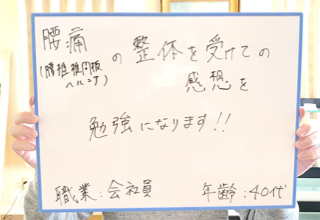 腰痛の整体を受けての
(腰椎椎間板
ヘルニア)
感想を
勉強になります!!
職業:会社員 年齢:40代